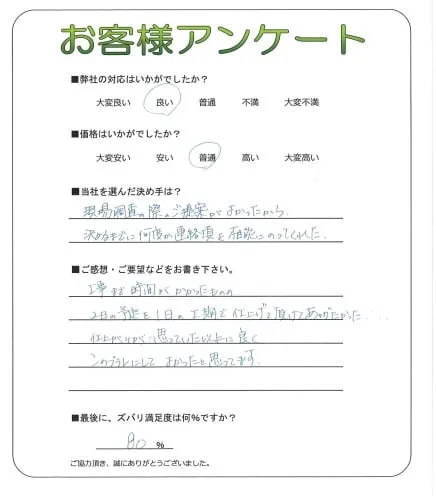 お客様アンケート
■弊社の対応はいかがでしたか？
大変良い 良い 普通 不満 大変不満
■価格はいかがでしたか？
大変安い 安い 普通 高い 大変高い
■当社を選んだ決め手は？
現場調査の際のご提案がよかったから.
決めるまでに何度か連絡頂き相談にのってくれた.
■ご感想・ご要望などをお書き下さい。
工事まで時間がかかったものの
2日の予定を1日の工期で仕上げて頂けてありがたかった....
仕上がりが思っていた以上に良く
にしてよかったと思ってます.
■最後に、ズバリ満足度は何％ですか？
80 ％
ご協力頂き、誠にありがとうございました。